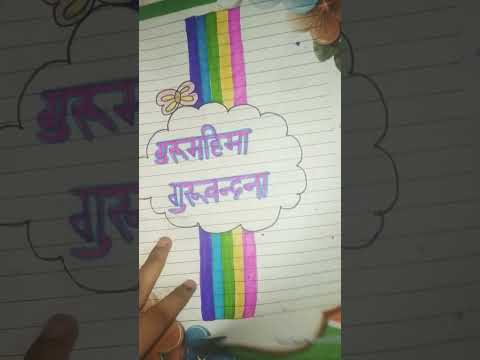 गुरूमहिमा
गुरूवन्दना